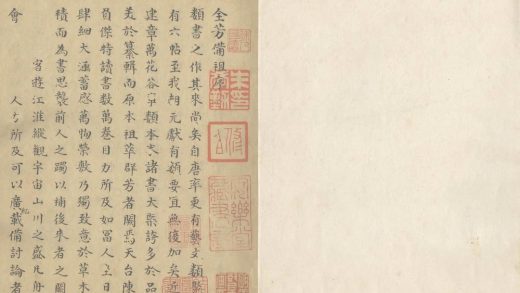 全芳備祖序
類書之作其來尚矣自唐率更有藝文類聚
有六帖至我朝元獻有類要宜無復加矣近
建章萬花谷類本末諸書大槩誇多於品
美於纂輯而原本祖萃群芳者闕焉天台陳
負傑特讀書数萬卷目力所及如冨人之日
肆細大涵蓄感萬物榮敷乃獨致意於草木
積而為書思前人之躅以補後来者之闕
宦遊江淮縱觀宇宙山川之盛凡舟
會 人所及可以廣載備討論者